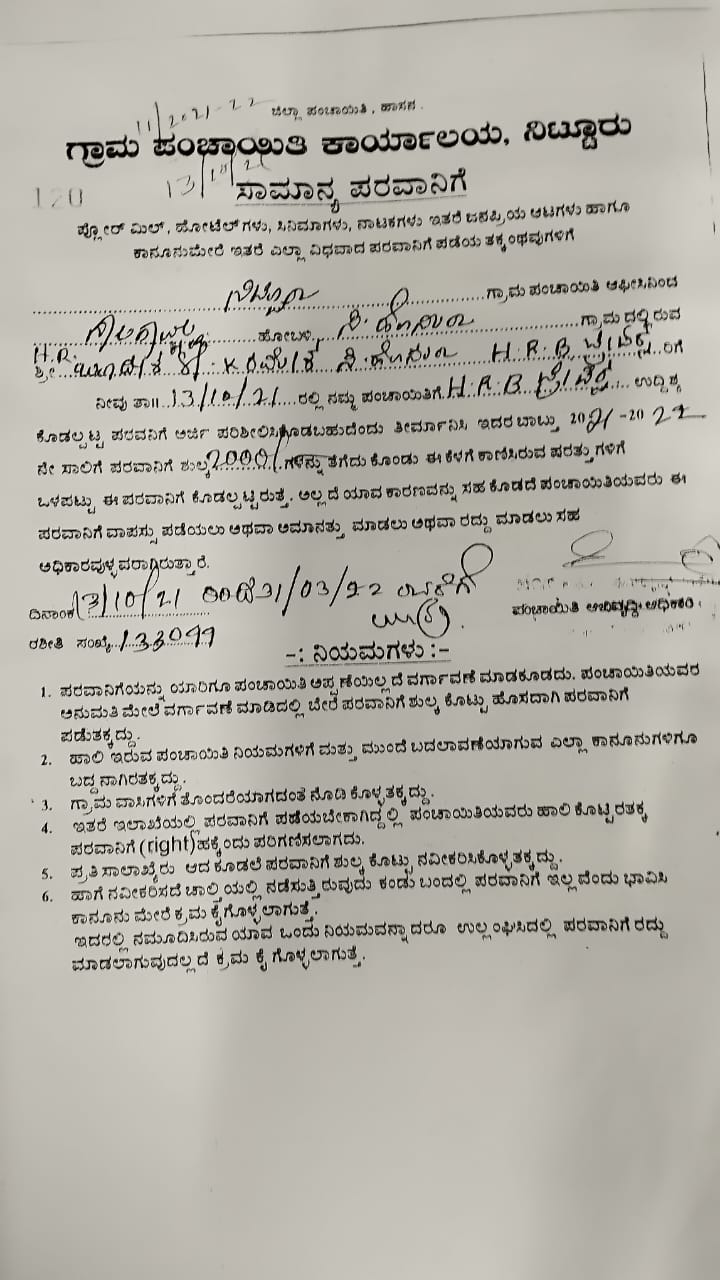 11/2021-22 ಜಿಲ್ಲಾ ಪಂಚಾಯಿತಿ, ಹಾಸನ.
ಗ್ರಾಮ ಪಂಚಾಯಿತಿ ಕಾರ್ಯಾಲಯ, ನಿಟ್ಟೂರು
120 13/10/21 ಸಾಮಾನ್ಯ ಪರವಾನಿಗೆ
ಪ್ಲೋರ್ ಮಿಲ್, ಹೋಟೆಲ್‌ಗಳು, ಸಿನಿಮಾಗಳು, ನಾಟಕಗಳು ಇತರೆ ಜನಪ್ರಿಯ ಆಟಗಳು ಹಾಗೂ
ಕಾನೂನುಮೇರೆ ಇತರೆ ಎಲ್ಲಾ ವಿಧವಾದ ಪರವಾನಿಗೆ ಪಡೆಯ ತಕ್ಕಂಥವುಗಳಿಗೆ
ನಿಟ್ಟೂರು ಗ್ರಾಮ ಪಂಚಾಯಿತಿ ಆಫೀಸಿನಿಂದ
ಹೋಬಳಿ, ಗ್ರಾಮದಲ್ಲಿರುವ
H.R. ಶ್ರೀ H.R.B ರಿಗೆ
ನೀವು ತಾ॥ 13/10/21 ರಲ್ಲಿ ನಮ್ಮ ಪಂಚಾಯಿತಿಗೆ H.R.B ಉದ್ದಿಶ್ಯ
ಕೊಡಲ್ಪಟ್ಟ ಪರವನಿಗೆ ಅರ್ಜಿ ಪರಿಶೀಲಿಸಿ ಕೊಡಬಹುದೆಂದು ತೀರ್ಮಾನಿಸಿ ಇದರ ಬಾಬ್ತು 2021-2022
ನೇ ಸಾಲಿಗೆ ಪರವಾನಿಗೆ ಶುಲ್ಕ 2000/ ಗಳನ್ನು ತೆಗೆದು ಕೊಂಡು ಈ ಕೆಳಗೆ ಕಾಣಿಸಿರುವ ಪರತ್ತುಗಳಿಗೆ
ಒಳಪಟ್ಟು ಈ ಪರವಾನಿಗೆ ಕೊಡಲ್ಪಟ್ಟಿರುತ್ತೆ. ಅಲ್ಲದೆ ಯಾವ ಕಾರಣವನ್ನು ಸಹ ಕೊಡದೆ ಪಂಚಾಯಿತಿಯವರು ಈ
ಪರವಾನಿಗೆ ವಾಪಸ್ಸು ಪಡೆಯಲು ಅಥವಾ ಅಮಾನತ್ತು ಮಾಡಲು ಅಥವಾ ರದ್ದು ಮಾಡಲು ಸಹ
ಅಧಿಕಾರವುಳ್ಳವರಾಗಿರುತ್ತಾರೆ.
ದಿನಾಂಕ 13/10/21 ರಿಂದ 31/03/22 ಪಂಚಾಯಿತಿ ಅಭಿವೃದ್ಧಿ ಅಧಿಕಾರಿ
ರಶೀತಿ ಸಂಖ್ಯೆ 133099
-: ನಿಯಮಗಳು :-
1. ಪರವಾನಿಗೆಯನ್ನು ಯಾರಿಗೂ ಪಂಚಾಯಿತಿ ಅಪ್ಪಣೆಯಿಲ್ಲದೆ ವರ್ಗಾವಣೆ ಮಾಡಕೂಡದು. ಪಂಚಾಯಿತಿಯವರ
ಅನುಮತಿ ಮೇಲೆ ವರ್ಗಾವಣೆ ಮಾಡಿದಲ್ಲಿ ಬೇರೆ ಪರವಾನಿಗೆ ಶುಲ್ಕ ಕೊಟ್ಟು ಹೊಸದಾಗಿ ಪರವಾನಿಗೆ
ಪಡೆತಕ್ಕದ್ದು.
2. ಹಾಲಿ ಇರುವ ಪಂಚಾಯಿತಿ ನಿಯಮಗಳಿಗೆ ಮತ್ತು ಮುಂದೆ ಬದಲಾವಣೆಯಾಗುವ ಎಲ್ಲಾ ಕಾನೂನುಗಳಿಗೂ
ಬದ್ದನಾಗಿರತಕ್ಕದ್ದು.
3. ಗ್ರಾಮ ವಾಸಿಗಳಿಗೆ ತೊಂದರೆಯಾಗದಂತೆ ನೊಡಿ ಕೊಳ್ಳತಕ್ಕದ್ದು.
4. ಇತರೆ ಇಲಾಖೆಯಲ್ಲಿ ಪರವಾನಿಗೆ ಪಡೆಯಬೇಕಾಗಿದ್ದಲ್ಲಿ ಪಂಚಾಯಿತಿಯವರು ಹಾಲಿ ಕೊಟ್ಟಿರತಕ್ಕ
ಪರವಾನಿಗೆ (right) ಹಕ್ಕೆಂದು ಪರಿಗಣಿಸಲಾಗದು.
5. ಪ್ರತಿ ಸಾಲಾಖೈರು ಆದ ಕೂಡಲೆ ಪರವಾನಿಗೆ ಶುಲ್ಕ ಕೊಟ್ಟು ನವೀಕರಿಸಿಕೊಳ್ಳತಕ್ಕದ್ದು.
6. ಹಾಗೆ ನವೀಕರಿಸದೆ ಚಾಲ್ತಿಯಲ್ಲಿ ನಡೆಸುತ್ತಿರುವುದು ಕಂಡು ಬಂದಲ್ಲಿ ಪರವಾನಿಗೆ ಇಲ್ಲವೆಂದು ಭಾವಿಸಿ
ಕಾನೂನು ಮೇರೆ ಕ್ರಮ ಕೈಗೊಳ್ಳಲಾಗುತ್ತೆ.
ಇದರಲ್ಲಿ ನಮೂದಿಸಿರುವ ಯಾವ ಒಂದು ನಿಯಮವನ್ನಾದರೂ ಉಲ್ಲಂಘಿಸಿದಲ್ಲಿ ಪರವಾನಿಗೆ ರದ್ದು
ಮಾಡಲಾಗುವುದಲ್ಲದೆ ಕ್ರಮ ಕೈಗೊಳ್ಳಲಾಗುತ್ತೆ.